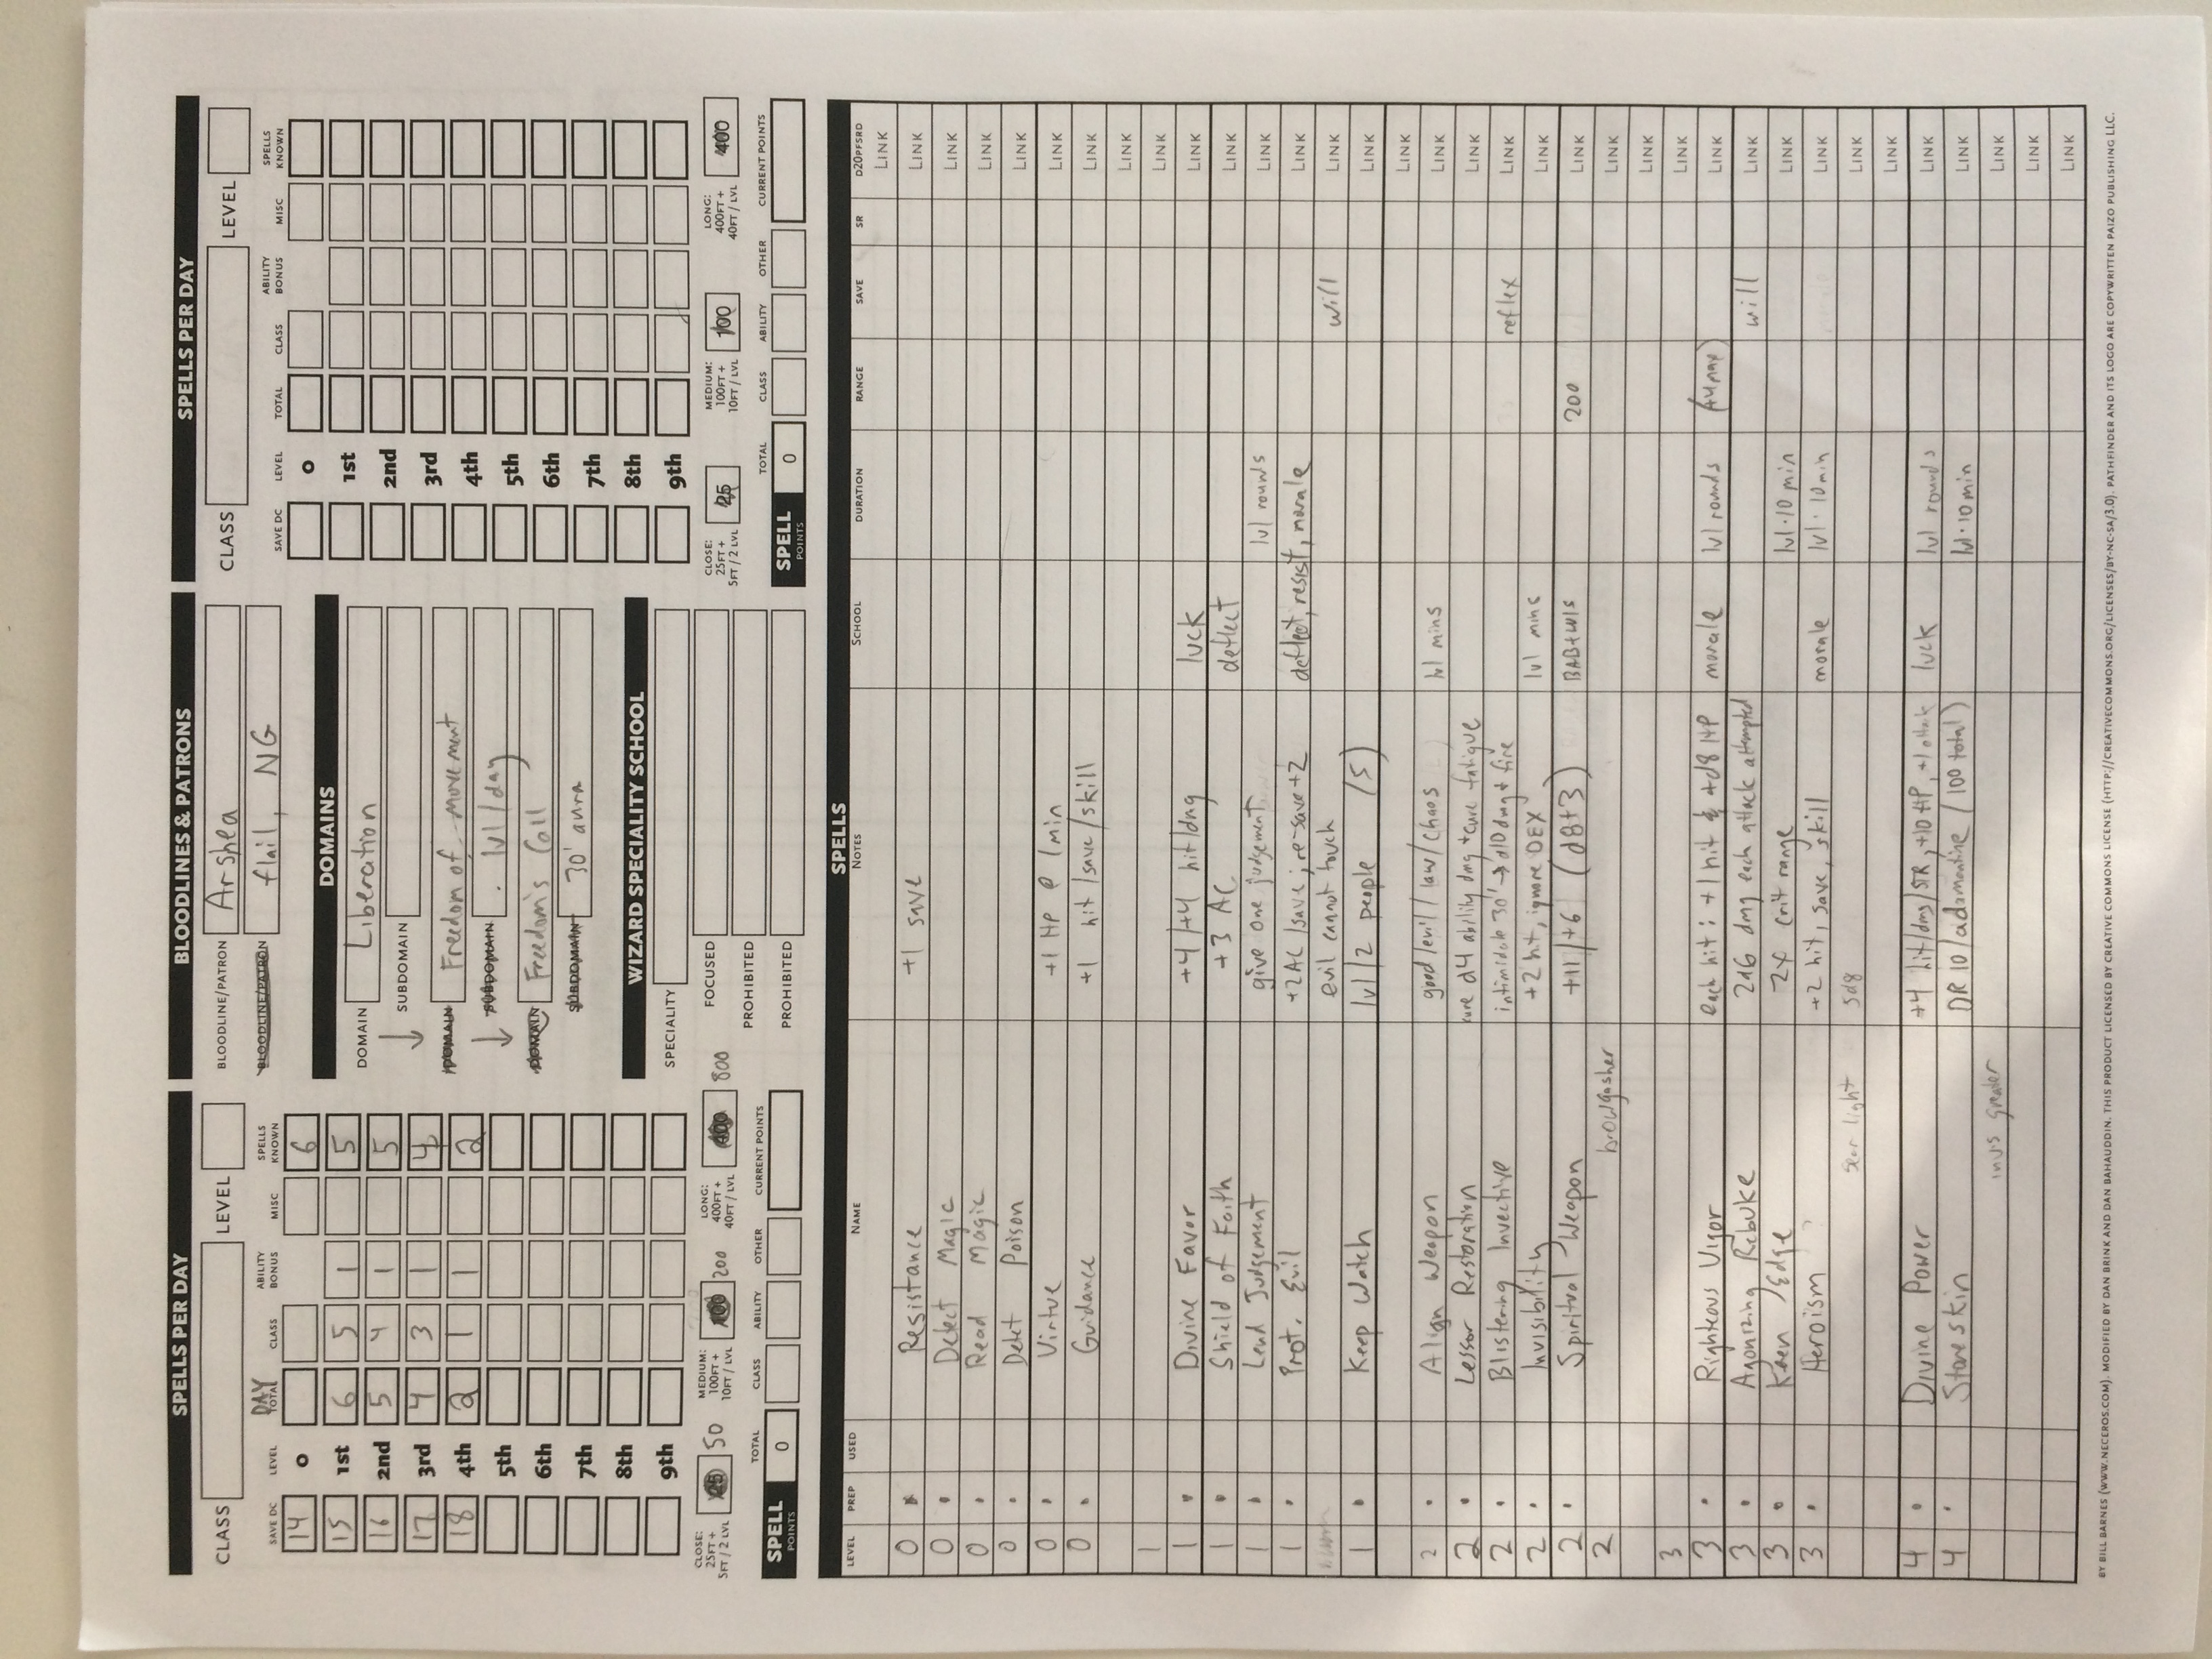 SPELLS PER DAY
CLASS LEVEL
DAY
SAVE DC LEVEL TOTAL CLASS ABILITY BONUS MISC SPELLS KNOWN
14 0 6
15 1st 6 5 1 5
16 2nd 5 4 1 5
17 3rd 4 3 1 4
18 4th 2 1 1 2
5th
6th
7th
8th
9th
CLOSE: 25FT + 5FT / 2 LVL 25 50 MEDIUM: 100FT + 10FT / LVL 100 200 LONG: 400FT + 40FT / LVL 400 800
TOTAL CLASS ABILITY OTHER CURRENT POINTS
SPELL POINTS 0
BLOODLINES & PATRONS
BLOODLINE/PATRON Arshea
BLOODLINE/PATRON flail, NG
DOMAINS
DOMAIN Liberation
SUBDOMAIN
DOMAIN Freedom of movement
SUBDOMAIN lvl/day
DOMAIN Freedom's Call
SUBDOMAIN 30' aura
WIZARD SPECIALITY SCHOOL
SPECIALITY
FOCUSED
PROHIBITED
PROHIBITED
SPELLS PER DAY
CLASS LEVEL
SAVE DC LEVEL TOTAL CLASS ABILITY BONUS MISC SPELLS KNOWN
0
1st
2nd
3rd
4th
5th
6th
7th
8th
9th
CLOSE: 25FT + 5FT / 2 LVL 25 MEDIUM: 100FT + 10FT / LVL 100 LONG: 400FT + 40FT / LVL 400
TOTAL CLASS ABILITY OTHER CURRENT POINTS
SPELL POINTS 0
SPELLS
LEVEL PREP USED NAME NOTES SCHOOL DURATION RANGE SAVE SR D20PFSRD
LINK
0 Resistance +1 save LINK
0 Detect Magic LINK
0 Read Magic LINK
0 Detct Poison LINK
0 Virtue +1 HP @ 1min LINK
0 Guidance +1 hit/save/skill LINK
LINK
1 LINK
1 Divine Favor +4/+4 hit/dmg luck LINK
1 Shield of Faith +3 AC deflect LINK
1 Lend Judgement give one judgement lvl rounds LINK
1 Prot. Evil +2AC/save; re-save+2 deflect, resist, morale LINK
evil cannot touch will LINK
1 Keep Watch lvl/2 people (5) LINK
LINK
2 Align Weapon good/evil/law/chaos lvl mins LINK
2 Lessor Restoration cure d4 ability dmg +cure fatigue LINK
2 Blistering Invective intimidate 30' → d10 dmg+ fire reflex LINK
2 Invisibility +2 hit, ignore DEX lvl mins LINK
2 Spiritual Weapon +11/+6 (d8+3) BAB+WIS 200 LINK
2 browgasher LINK
LINK
3 LINK
3 Righteous Vigor each hit: +1 hit & +d8 HP morale lvl rounds (+4 max) LINK
3 Agonizing Rebuke 2d6 dmg each attack attempted will LINK
3 Keen Edge 2x crit range lvl·10 min LINK
3 Heroism ? +2 hit, save, skill morale lvl·10min LINK
sear light 5d8 LINK
LINK
4 Divine Power +4 hit/dmg/STR, +10 HP, +1 attack luck lvl rounds LINK
4 Stoneskin DR 10/adamantine (100 total) lvl·10 min LINK
invis greater LINK
LINK
LINK
BY BILL BARNES (WWW.NECEROS.COM). MODIFIED BY DAN BRINK AND DAN BAHAUDDIN. THIS PRODUCT LICENSED BY CREATIVE COMMONS LICENSE (HTTP://CREATIVECOMMONS.ORG/LICENSES/BY-NC-SA/3.0). PATHFINDER AND ITS LOGO ARE COPYWRITTEN PAIZO PUBLISHING LLC.